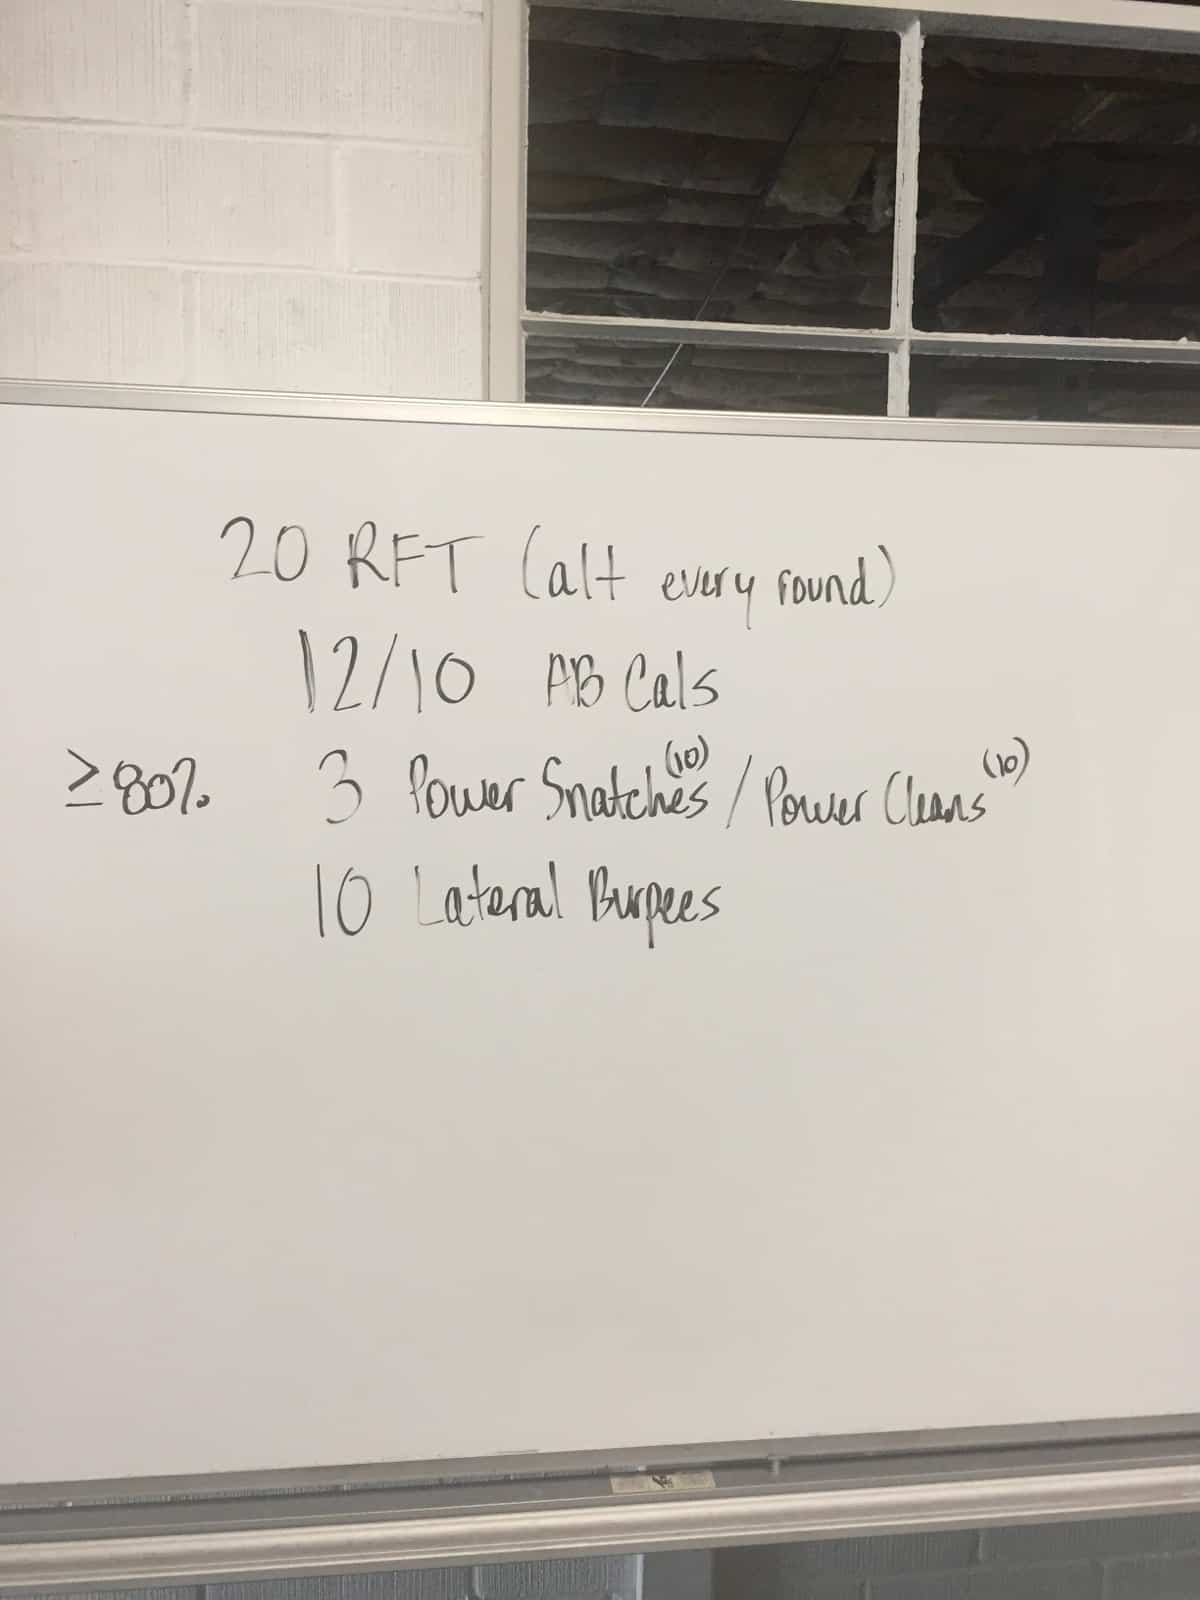 20 RFT (alt every round)
12/10 AB Cals
≥80% 3 Power Snatches (10) / Power Cleans (10)
10 Lateral Burpees